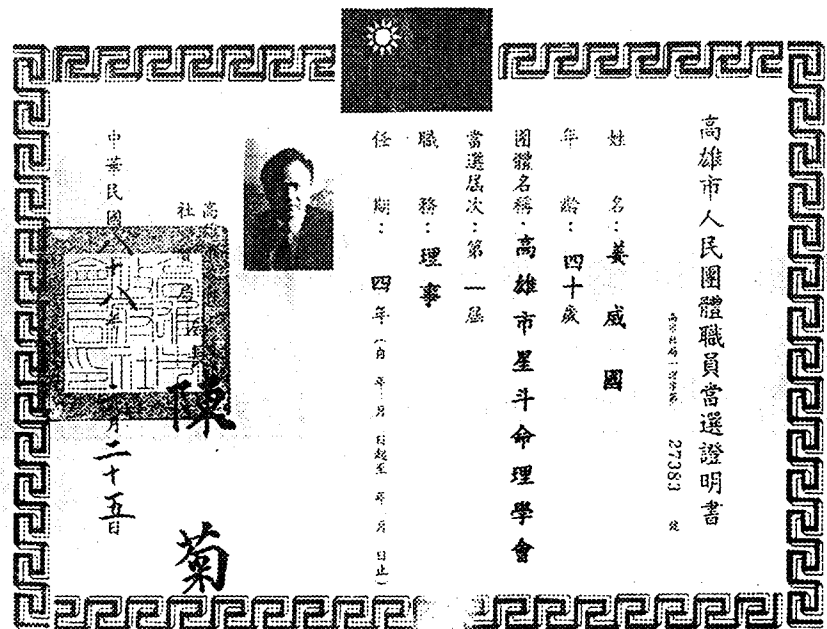 高雄市人民團體職員當選證明書
27383 號
姓 名：姜威國
年 齡：四十歲
團體名稱：高雄市星斗命理學會
當選屆次：第一屆
職 務：理事
任 期：四年（自 年 月 日起至 年 月 日止）
陳菊
中華民國八十八年 月二十五日